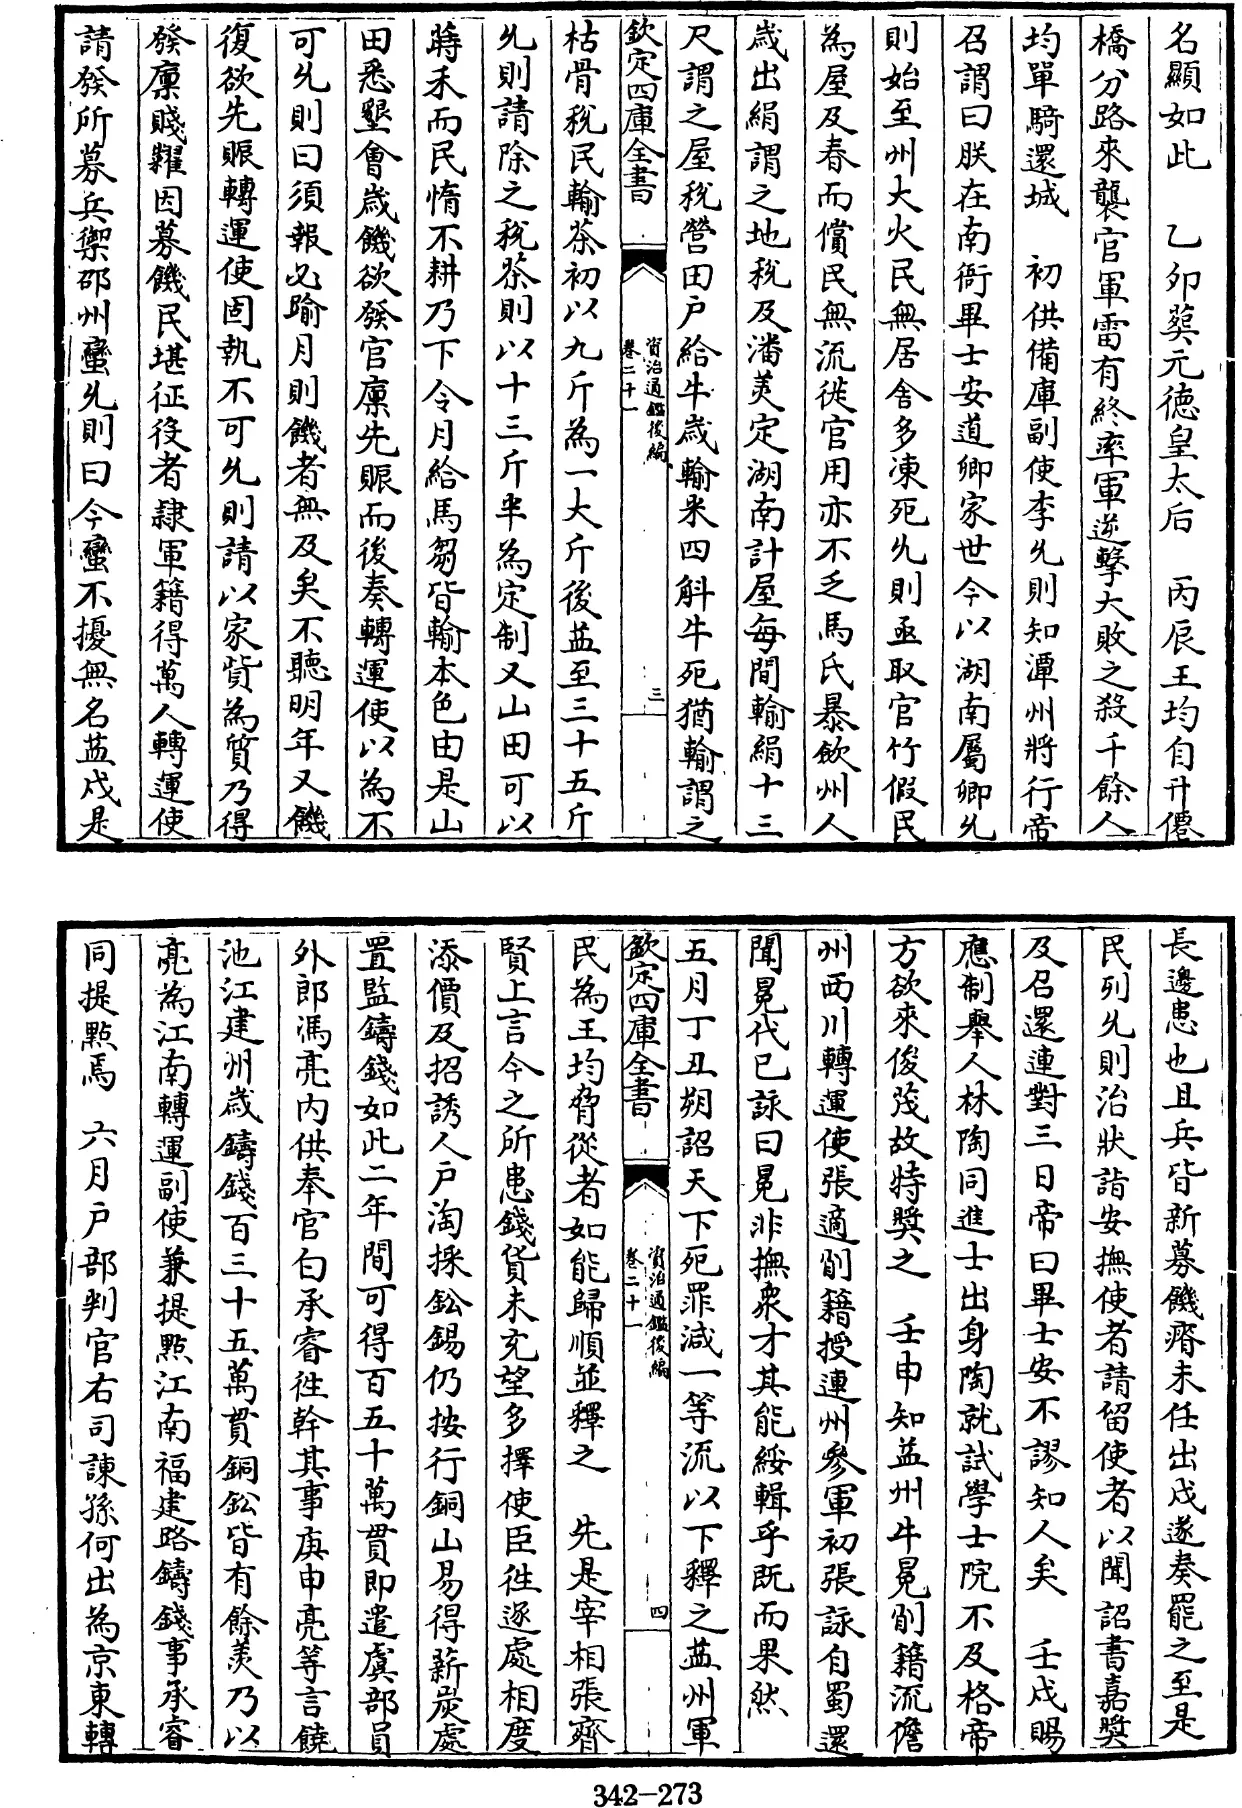 名顯如此　乙卯葬元德皇太后　丙辰王均自升僊
橋分路來襲官軍雷有終率軍逆擊大敗之殺千餘人
均單騎還城　初供備庫副使李允則知潭州將行帝
召謂曰朕在南衙畢士安道卿家世今以湖南屬卿允
則始至州大火民無居舍多凍死允則亟取官竹假民
為屋及春而償民無流徙官用亦不乏馬氏暴斂州人
歲出絹謂之地税及潘美定湖南計屋每間輸絹十三
尺謂之屋税營田户給牛歲輸米四斛牛死猶輸謂之
欽定四庫全書
資治通鑑後編
卷二十一
三
枯骨税民輸茶初以九斤為一大斤後益至三十五斤
允則請除之税茶則以十三斤半為定制又山田可以
蒔禾而民惰不耕乃下令月給馬芻皆輸本色由是山
田悉墾會歲饑欲發官廪先賑而後奏轉運使以為不
可允則曰須報必踰月則饑者無及矣不聽明年又饑
復欲先賑轉運使固執不可允則請以家貲為質乃得
發廪賤糶因募饑民堪征役者隷軍籍得萬人轉運使
請發所募兵禦邵州蠻允則曰今蠻不擾無名益戍是
長邊患也且兵皆新募饑瘠未任出戍遂奏罷之至是
民列允則治狀詣安撫使者請留使者以聞詔書嘉奬
及召還連對三日帝曰畢士安不謬知人矣　壬戌賜
應制舉人林陶同進士出身陶就試學士院不及格帝
方欲來俊茂故特奬之　壬申知益州牛冕削籍流儋
州西川轉運使張適削籍授連州參軍初張詠自蜀還
聞冕代已詠曰冕非撫衆才其能綏輯乎既而果然
五月丁丑朔詔天下死罪減一等流以下釋之益州軍
欽定四庫全書
資治通鑑後編
卷二十一
四
民為王均脅從者如能歸順並釋之　先是宰相張齊
賢上言今之所患錢貨未充望多擇使臣往逐處相度
添價及招誘人户淘採鈆錫仍按行銅山易得薪炭處
置監鑄錢如此二年間可得百五十萬貫即遣虞部員
外郎馮亮内供奉官白承睿往幹其事庚申亮等言饒
池江建州歲鑄錢百三十五萬貫銅鈆皆有餘羡乃以
亮為江南轉運副使兼提點江南福建路鑄錢事承睿
同提點焉　六月户部判官右司諫孫何出為京東轉
342-273